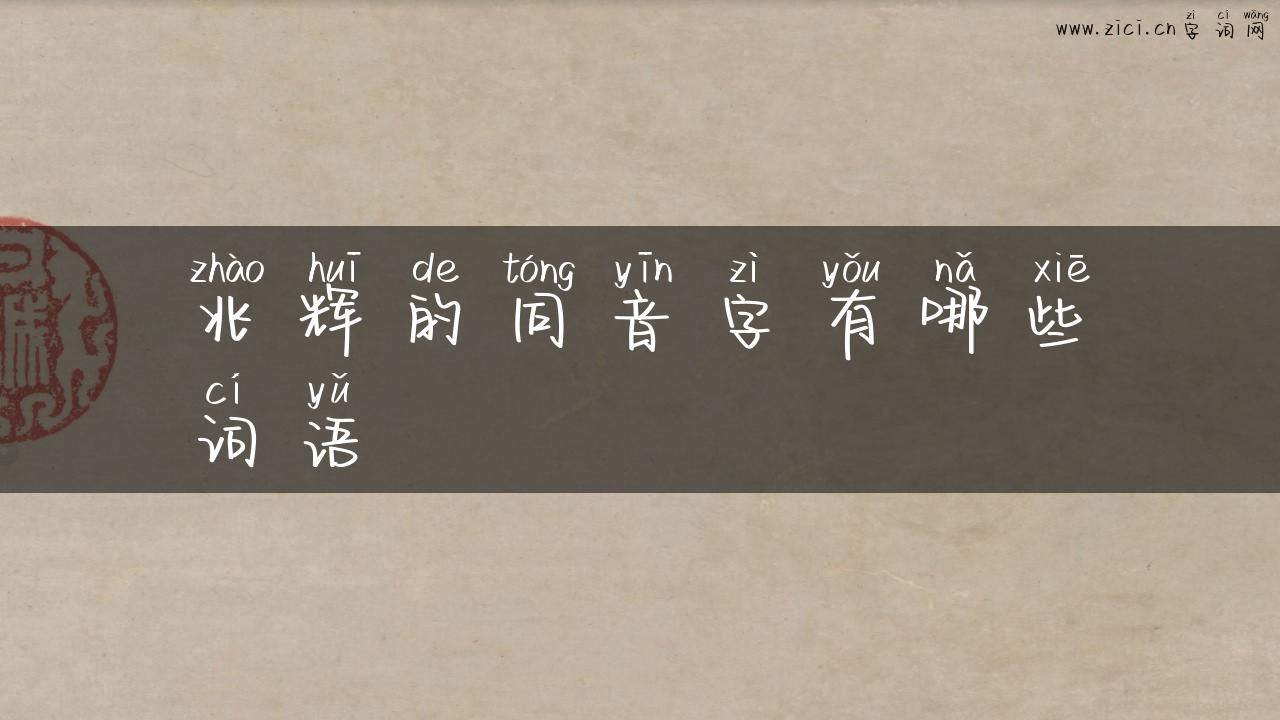 zì cí wǎng
www.zici.cn 字词网
zhào huī de tóng yīn zì yǒu nǎ xiē
兆辉的同音字有哪些
cí yǔ
词语